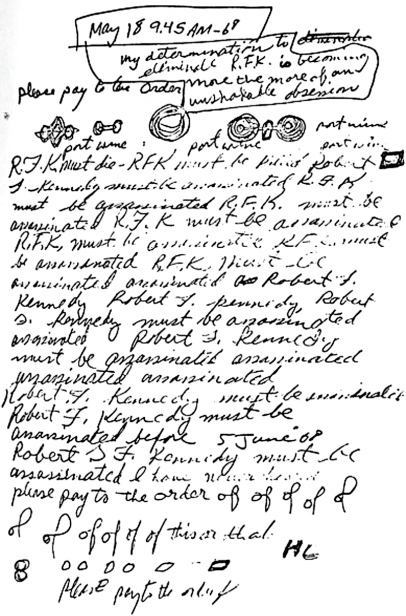 May 18 9.45 AM-68
my determination to
eliminate R.F.K. is becoming
please pay to the order more the more of an
unshakable obsession
port wine port wine port wine
R.F.K must die - RFK must be killed Robert
F. Kennedy must be assassinated R.F.K.
must be assassinated R.F.K. must be
assassinated R.F.K must be assassinated
R.F.K. must be assassinated R.F.K. must
be assassinated R.F.K. must be
assassinated assassinated Robert F.
Kennedy Robert F. Kennedy Robert
F. Kennedy must be assassinated
assassinated Robert F. Kennedy
must be assassinated assassinated
assassinated assassinated
Robert F. Kennedy must be assassinated
Robert F. Kennedy must be
assassinated before 5 June 68
Robert F. Kennedy must be
assassinated I have never heard
please pay to the order of of of of of
of of of of of of this or that
8 00 00 0
please pay to the order of